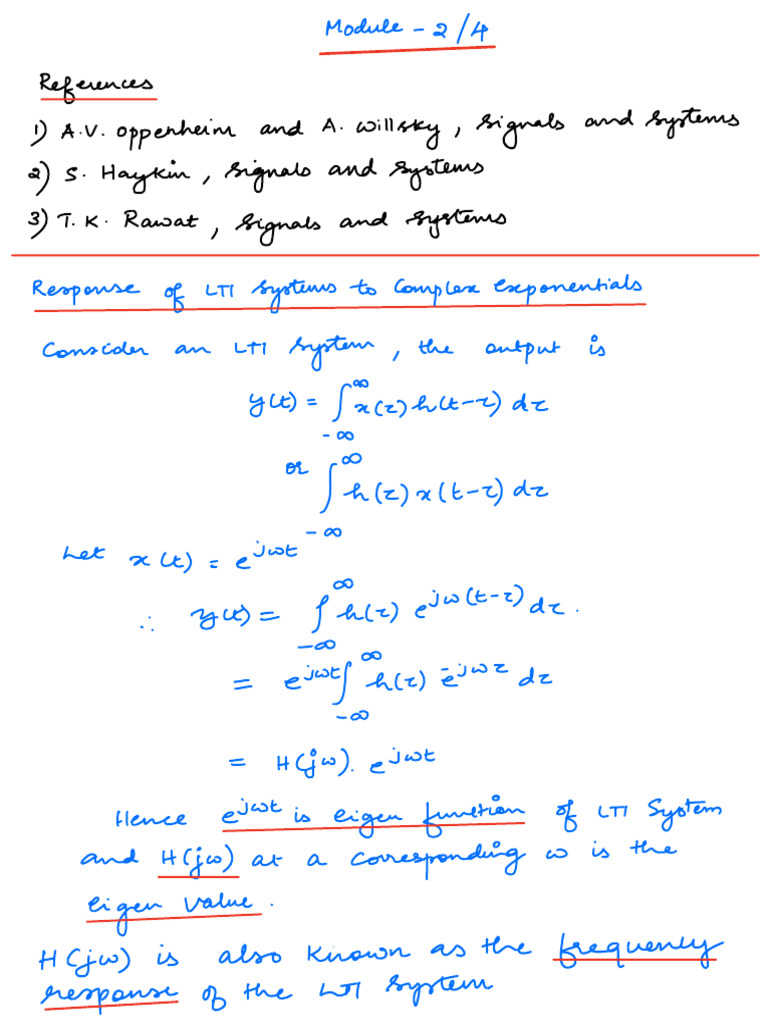 Module - 2/4
References
1) A.V. Oppenheim and A. Willsky, Signals and Systems
2) S. Haykin, Signals and Systems
3) T.K. Rawat, Signals and Systems
Response of LTI Systems to Complex Exponentials
Consider an LTI System, the output is
y(t) = ∫_{-∞}^{∞} x(τ) h(t-τ) dτ
or ∫_{-∞}^{∞} h(τ) x(t-τ) dτ
Let x(t) = e^{jωt}
∴ y(t) = ∫_{-∞}^{∞} h(τ) e^{jω(t-τ)} dτ.
= e^{jωt} ∫_{-∞}^{∞} h(τ) e^{-jωτ} dτ
= H(jω). e^{jωt}
Hence e^{jωt} is eigen function of LTI System
and H(jω) at a corresponding ω is the
eigen value.
H(jω) is also known as the frequency
response of the LTI System